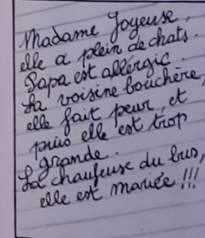 Madame Joyeuse,
elle a plein de chats.
Papa est allergic.
La voisine bouchère,
elle fait peur, et
puis elle est trop
grande.
La chaufeuse du bus,
elle est mariée !!!